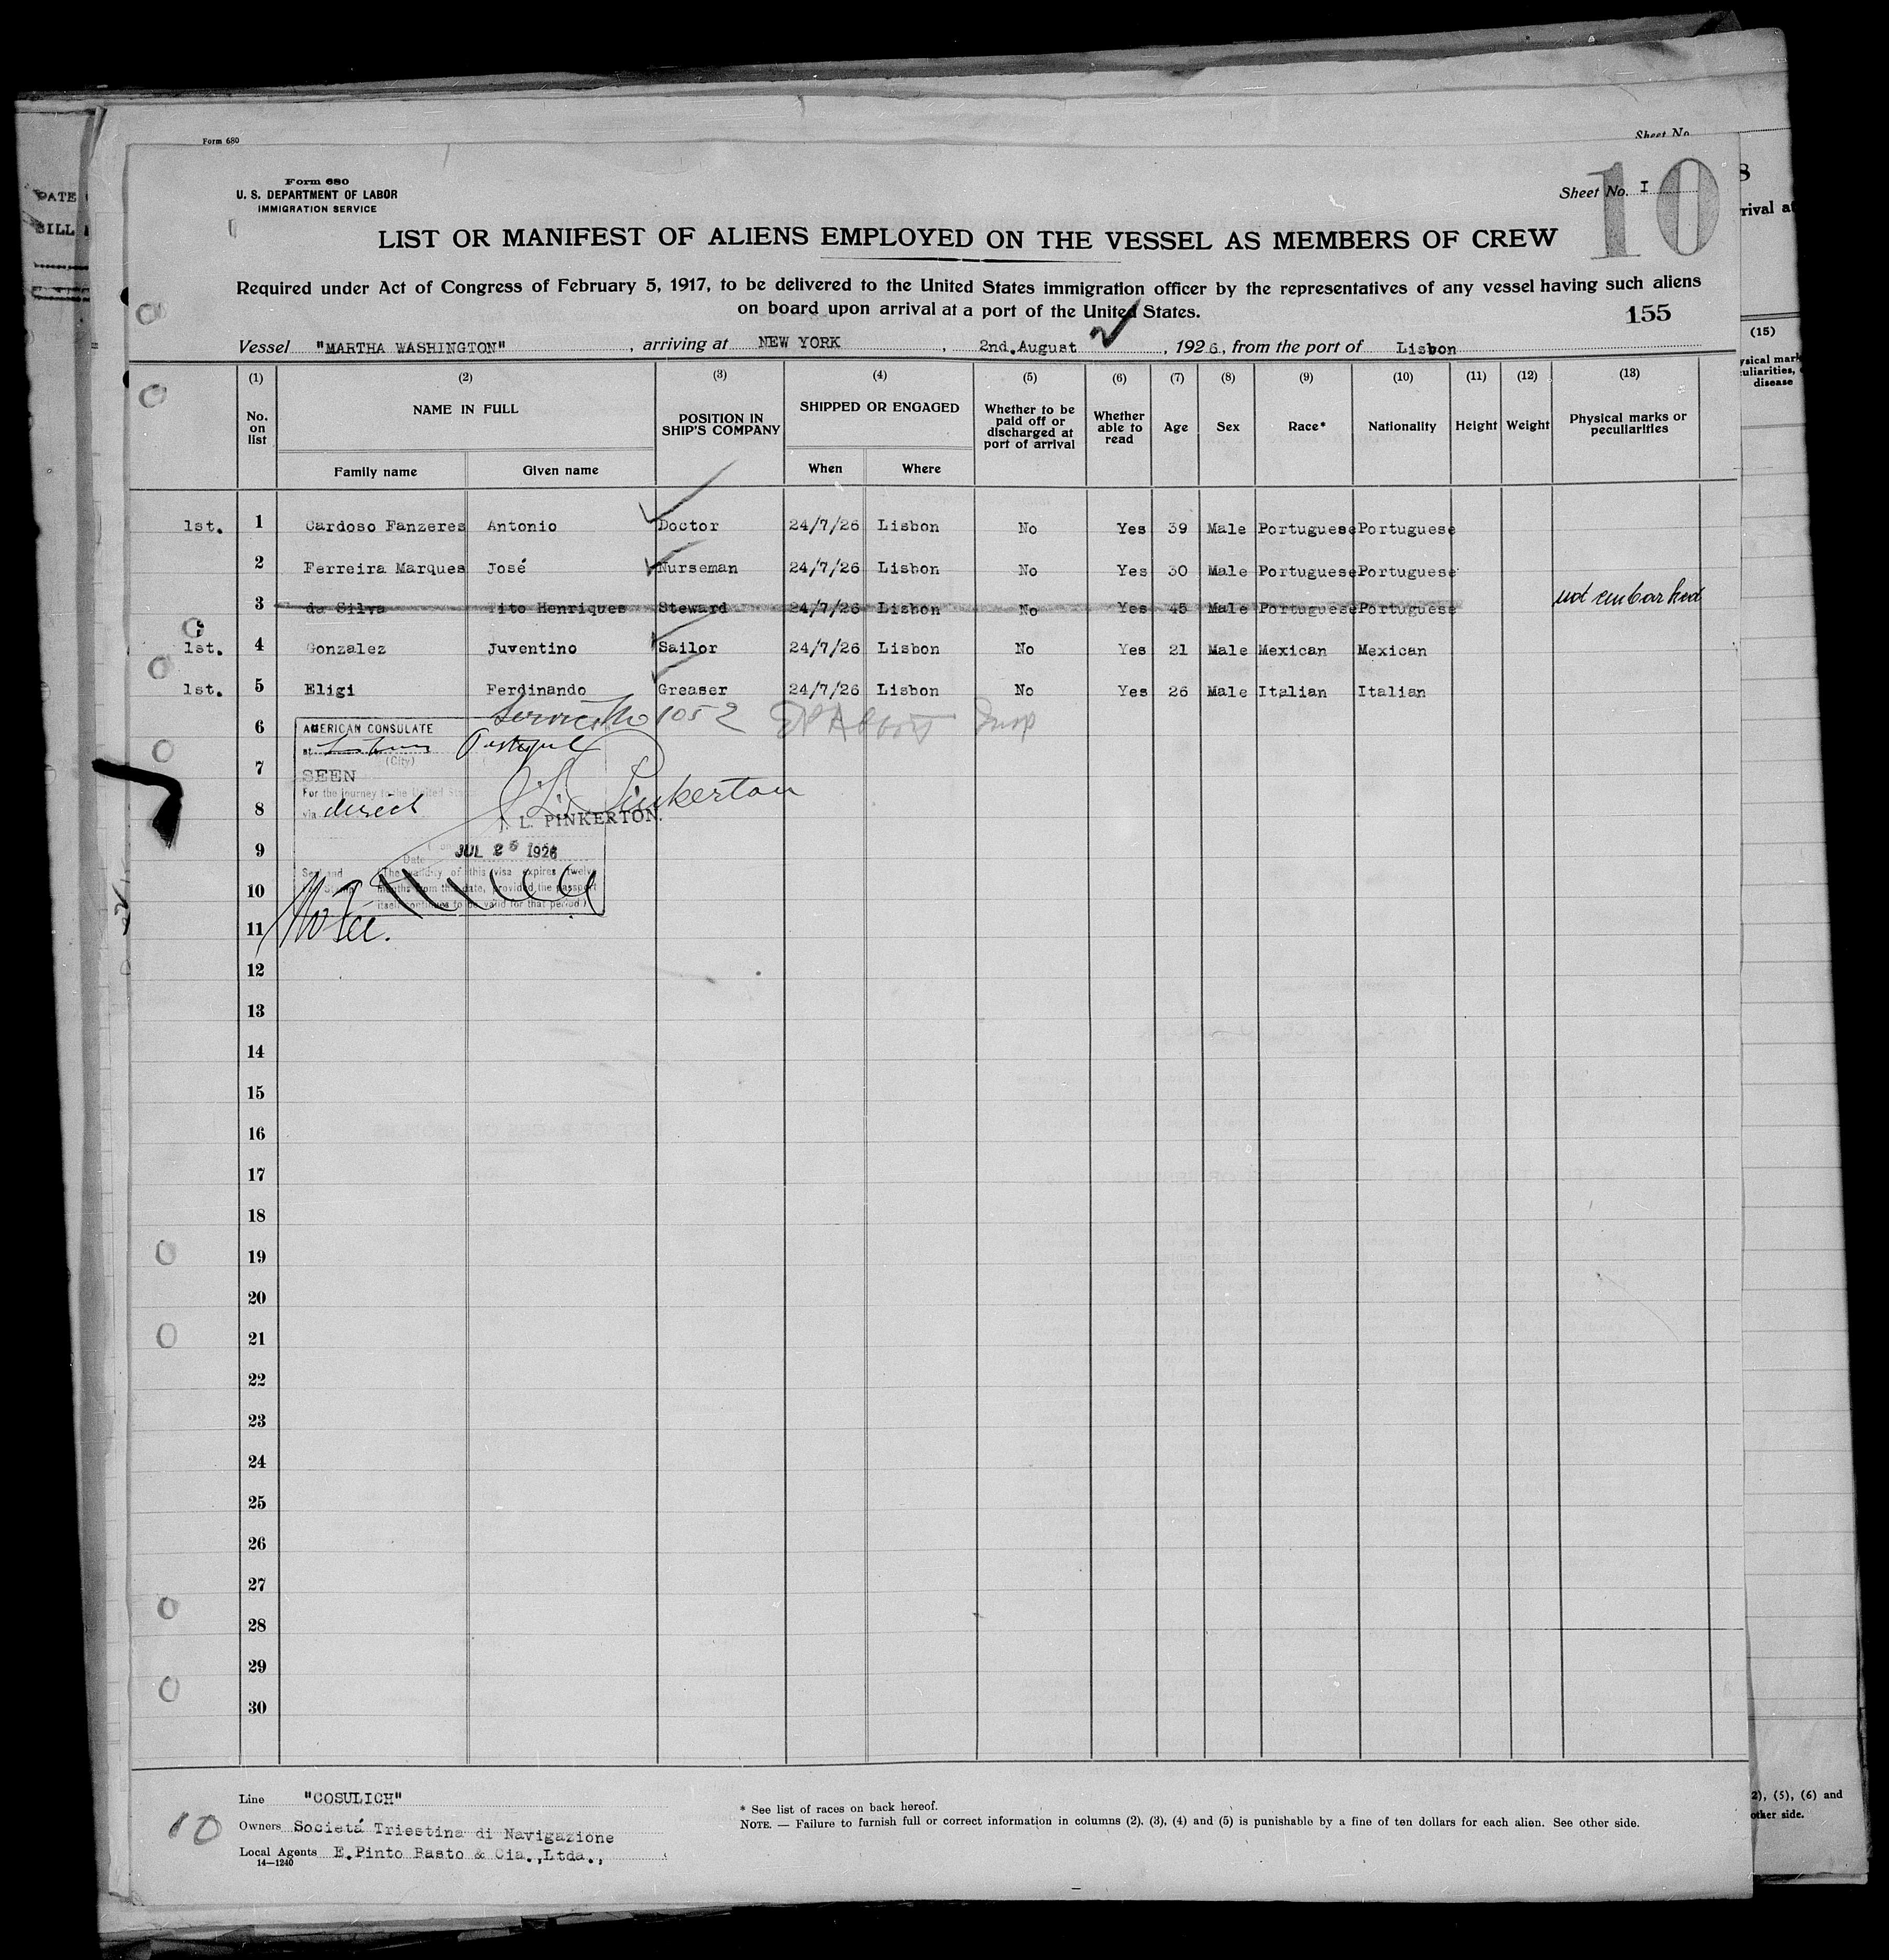 Form 680
Sheet No.
Form 680
U. S. DEPARTMENT OF LABOR
IMMIGRATION SERVICE
Sheet No. I
10
LIST OR MANIFEST OF ALIENS EMPLOYED ON THE VESSEL AS MEMBERS OF CREW
Required under Act of Congress of February 5, 1917, to be delivered to the United States immigration officer by the representatives of any vessel having such aliens
on board upon arrival at a port of the United States.
155
Vessel "MARTHA WASHINGTON", arriving at NEW YORK, 2nd.August, 1926, from the port of Lisbon
(1) (2) (3) (4) (5) (6) (7) (8) (9) (10) (11) (12) (13)
No. on list NAME IN FULL POSITION IN SHIP'S COMPANY SHIPPED OR ENGAGED Whether to be paid off or discharged at port of arrival Whether able to read Age Sex Race* Nationality Height Weight Physical marks or peculiarities
Family name Given name When Where
1st. 1 Cardoso Fanzeres Antonio Doctor 24/7/26 Lisbon No Yes 39 Male Portuguese Portuguese
2 Ferreira Marques José Nurseman 24/7/26 Lisbon No Yes 30 Male Portuguese Portuguese
3 da Silva Tito Henriques Steward 24/7/26 Lisbon No Yes 45 Male Portuguese Portuguese not embarked
1st. 4 Gonzalez Juventino Sailor 24/7/26 Lisbon No Yes 21 Male Mexican Mexican
1st. 5 Eligi Ferdinando Greaser 24/7/26 Lisbon No Yes 26 Male Italian Italian
Service No 1052
6 AMERICAN CONSULATE
at Lisbon Portugal
(City)
7 SEEN
For the journey to the United States
8 via direct
L. Pinkerton
L. PINKERTON.
9 Date JUL 26 1926
Seal and
(The validity of this visa expires twelve
10 months from this date, provided the passport
itself continues to be valid for that period.)
11 No Fee.
12
13
14
15
16
17
18
19
20
21
22
23
24
25
26
27
28
29
30
Line "COSULICH"
Owners Societá Triestina di Navigazione
Local Agents E.Pinto Basto & Cia.,Ltda.,
14—1240
10
* See list of races on back hereof.
NOTE. — Failure to furnish full or correct information in columns (2), (3), (4) and (5) is punishable by a fine of ten dollars for each alien. See other side.
DATE
BILL
8
rival at
(15)
disease
2), (5), (6) and
other side.